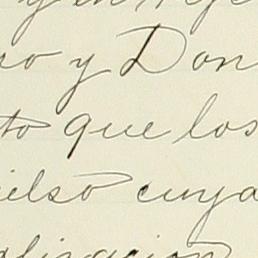 y en
ro y Don
to que los
ielso cuya